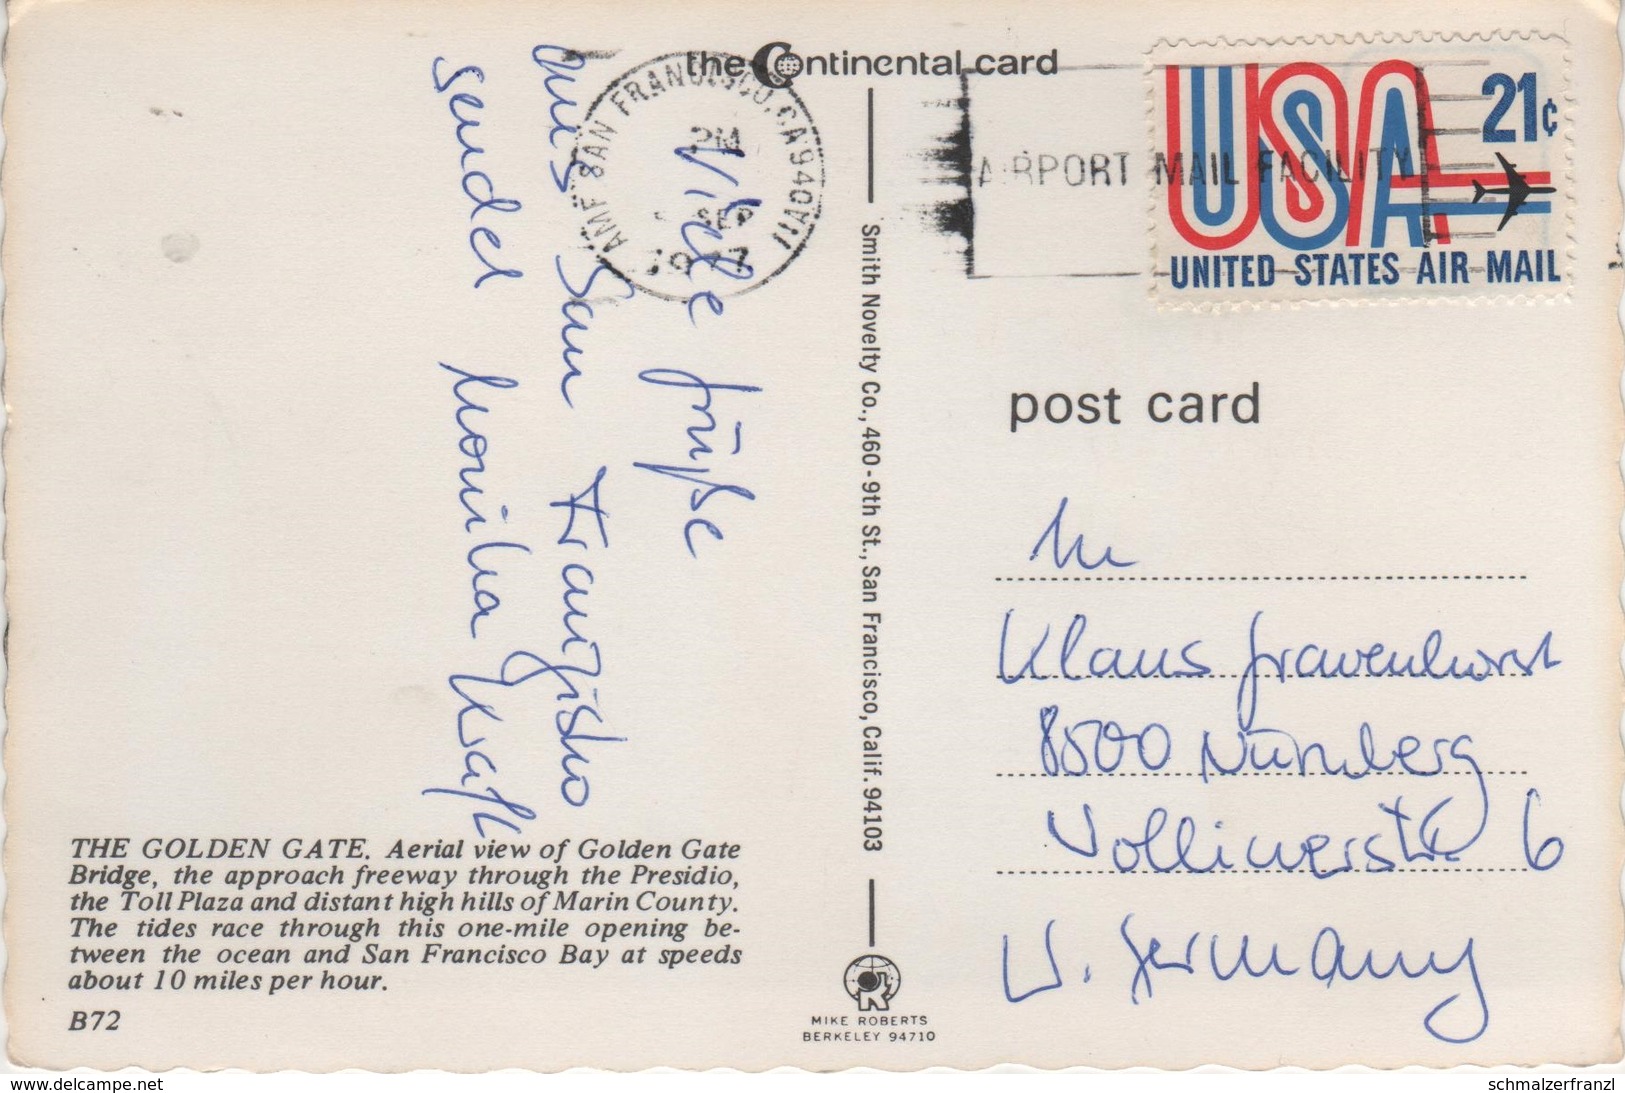 the Continental card
AMF SAN FRANCISCO, CA 940
PM
SEP
1977
AIRPORT MAIL FACILITY
USA 21¢
UNITED STATES AIR MAIL
Viele Grüße
aus San Franzisko
sendet Monika Kraft
Smith Novelty Co., 460-9th St., San Francisco, Calif. 94103
post card
Klaus Gravenhorst
8500 Nürnberg
6
W. Germany
THE GOLDEN GATE. Aerial view of Golden Gate
Bridge, the approach freeway through the Presidio,
the Toll Plaza and distant high hills of Marin County.
The tides race through this one-mile opening be-
tween the ocean and San Francisco Bay at speeds
about 10 miles per hour.
B72
MIKE ROBERTS
BERKELEY 94710
www.delcampe.net
schmalzerfranzl